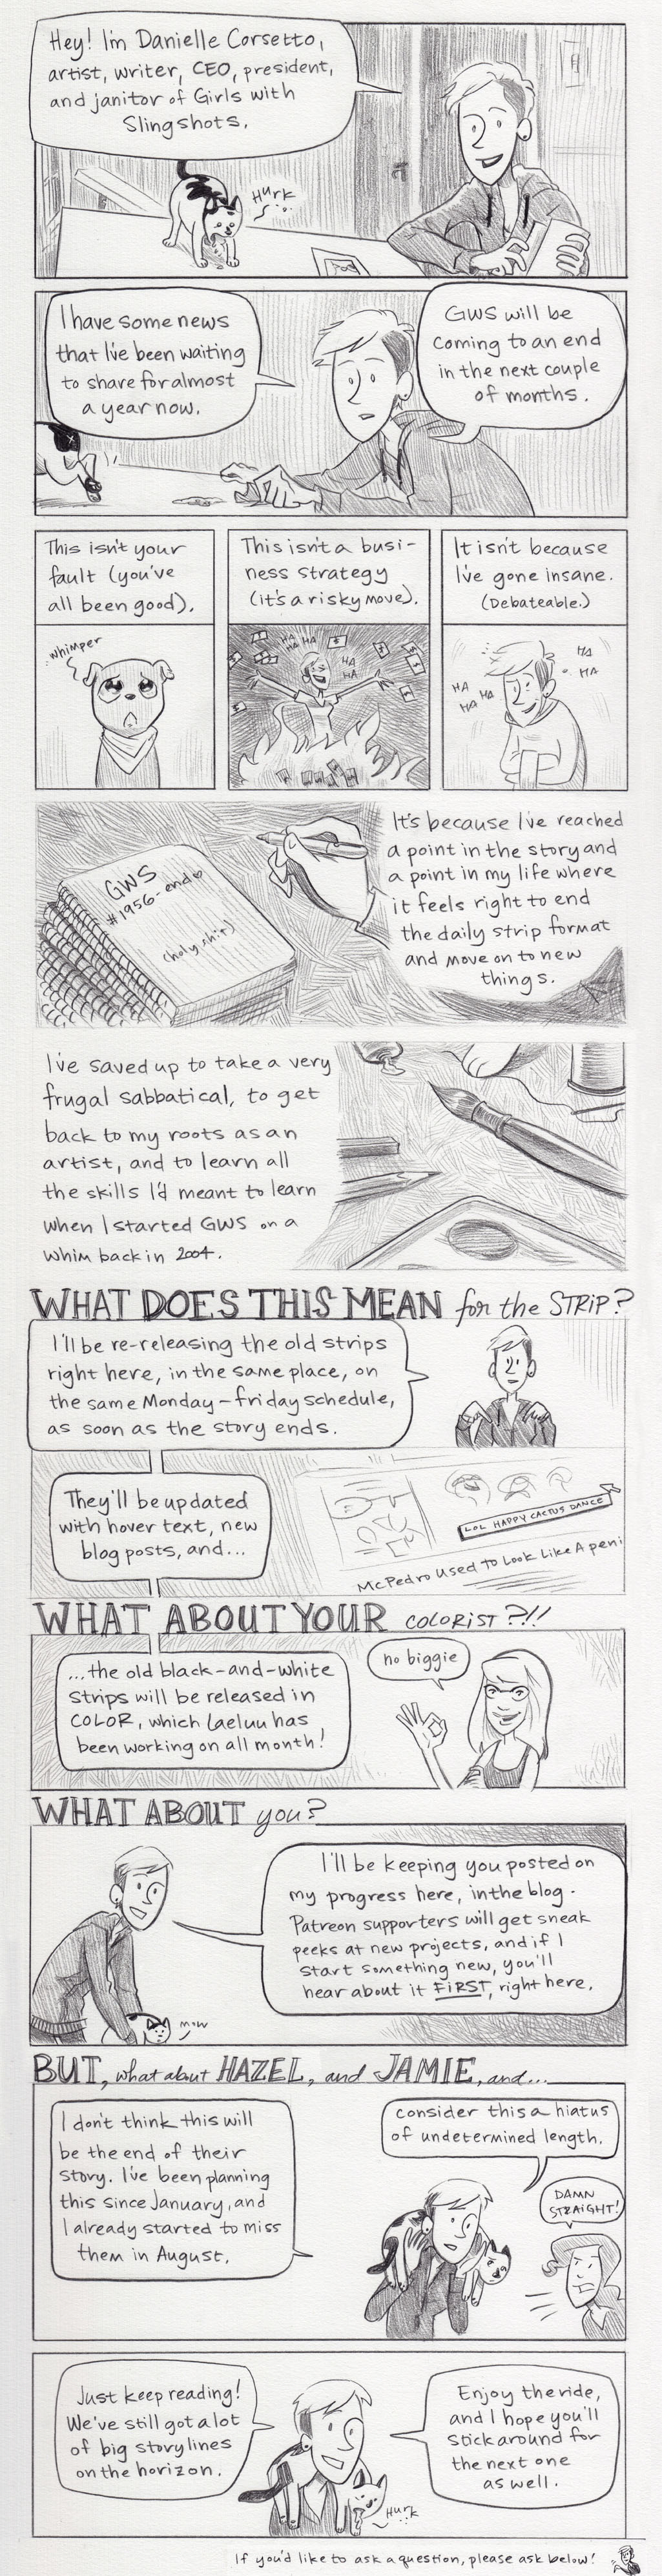 Hey! I'm Danielle Corsetto,
artist, writer, CEO, president,
and janitor of Girls with
Slingshots.
Hurk
I have some news
that I've been waiting
to share for almost
a year now.
GWS will be
coming to an end
in the next couple
of months.
This isn't your
fault (you've
all been good).
whimper
This isn't a busi-
ness strategy
(it's a risky move).
HA
HA HA
HA
HA
It isn't because
I've gone insane.
(Debateable.)
HA
HA
HA
HA
GWS
#1956-end♡
(holy shit)
It's because I've reached
a point in the story and
a point in my life where
it feels right to end
the daily strip format
and move on to new
things.
I've saved up to take a very
frugal sabbatical, to get
back to my roots as an
artist, and to learn all
the skills I'd meant to learn
when I started GWS on a
whim back in 2004.
WHAT DOES THIS MEAN for the STRIP?
I'll be re-releasing the old strips
right here, in the same place, on
the same Monday-friday schedule,
as soon as the story ends.
They'll be updated
with hover text, new
blog posts, and...
LOL HAPPY CACTUS DANCE
McPedro Used To Look Like A peni
WHAT ABOUT YOUR COLORIST?!!
...the old black-and-white
strips will be released in
COLOR, which Laeluu has
been working on all month!
no biggie
WHAT ABOUT you?
I'll be keeping you posted on
my progress here, in the blog.
Patreon supporters will get sneak
peeks at new projects, and if I
start something new, you'll
hear about it FIRST, right here.
mow
BUT, what about HAZEL, and JAMIE, and...
I don't think this will
be the end of their
story. I've been planning
this since January, and
I already started to miss
them in August.
consider this a hiatus
of undetermined length.
DAMN
STRAIGHT!
Just keep reading!
We've still got a lot
of big storylines
on the horizon.
Enjoy the ride,
and I hope you'll
stick around for
the next one
as well.
Hurk
If you'd like to ask a question, please ask below!